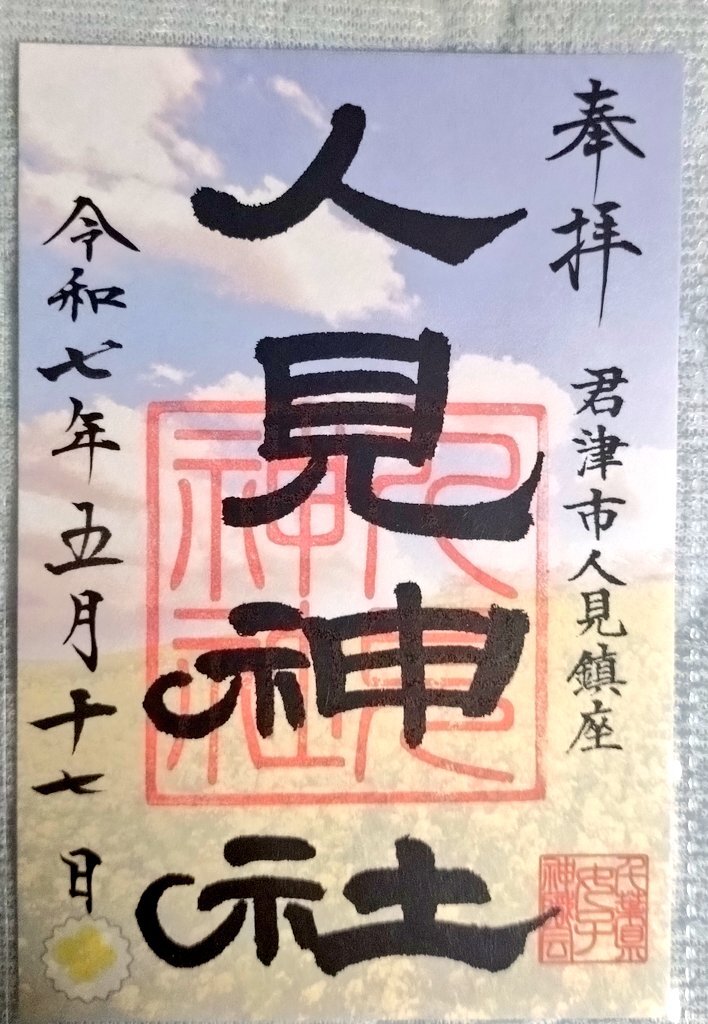 奉拝
君津市人見鎮座
人見神社
人見神社
令和七年五月十七日